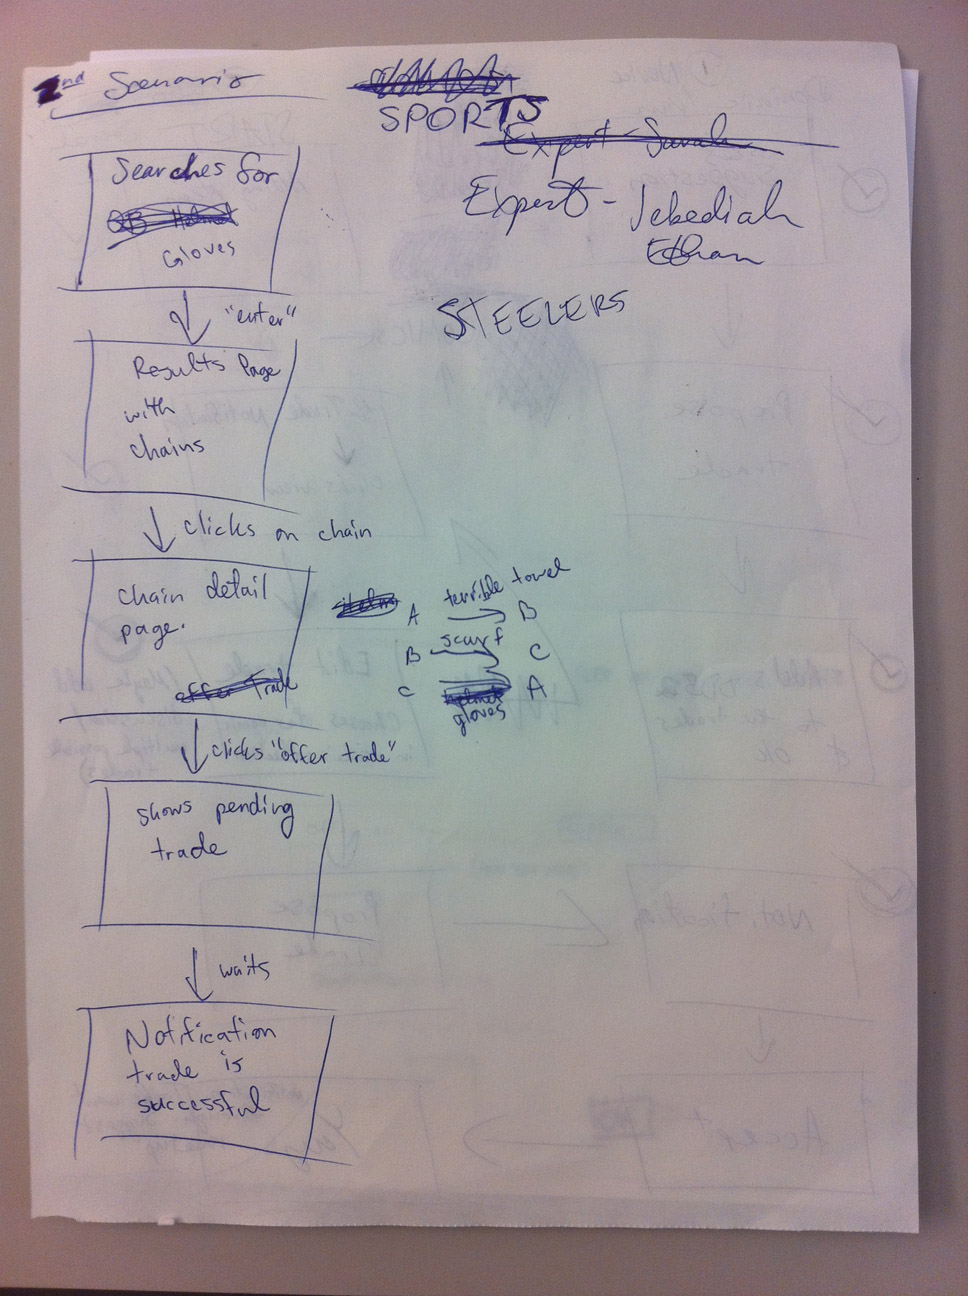 2nd Scenario
SPORTS
Expert - Sarah
Expert - Jebediah
Ethan
STEELERS
Searches for
QB Helmet
Gloves
"enter"
Results Page
with
chains
clicks on chain
chain detail
page.
offer trade
A terrible towel B
B scarf C
C helmet A
gloves
clicks "offer trade"
shows pending
trade
waits
Notification
trade is
successful